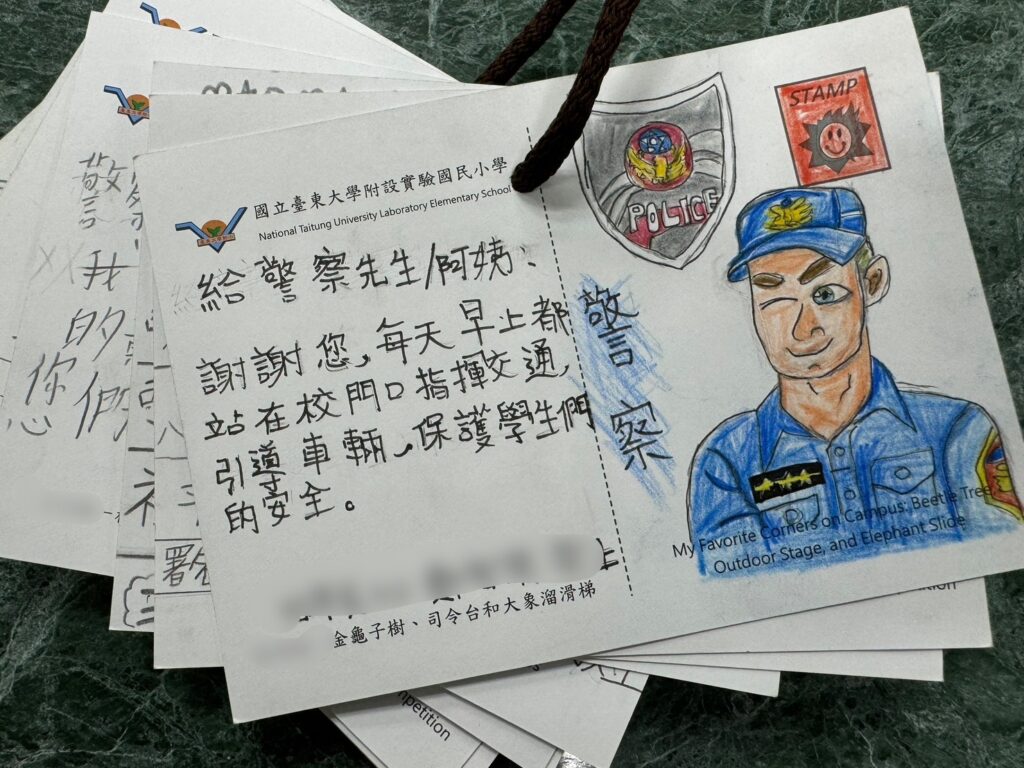 國立臺東大學附設實驗國民小學
National Taitung University Laboratory Elementary School
給警察先生/阿姨、
謝謝您,每天早上都
站在校門口指揮交通,
引導車輛、保護學生們
的安全。
上
金龜子樹、司令台和大象溜滑梯
POLICE
STAMP
警察
My Favorite Corners on Campus: Beetle Tree,
Outdoor Stage, and Elephant Slide
警
我
的
你
們
您
署名
mpetition